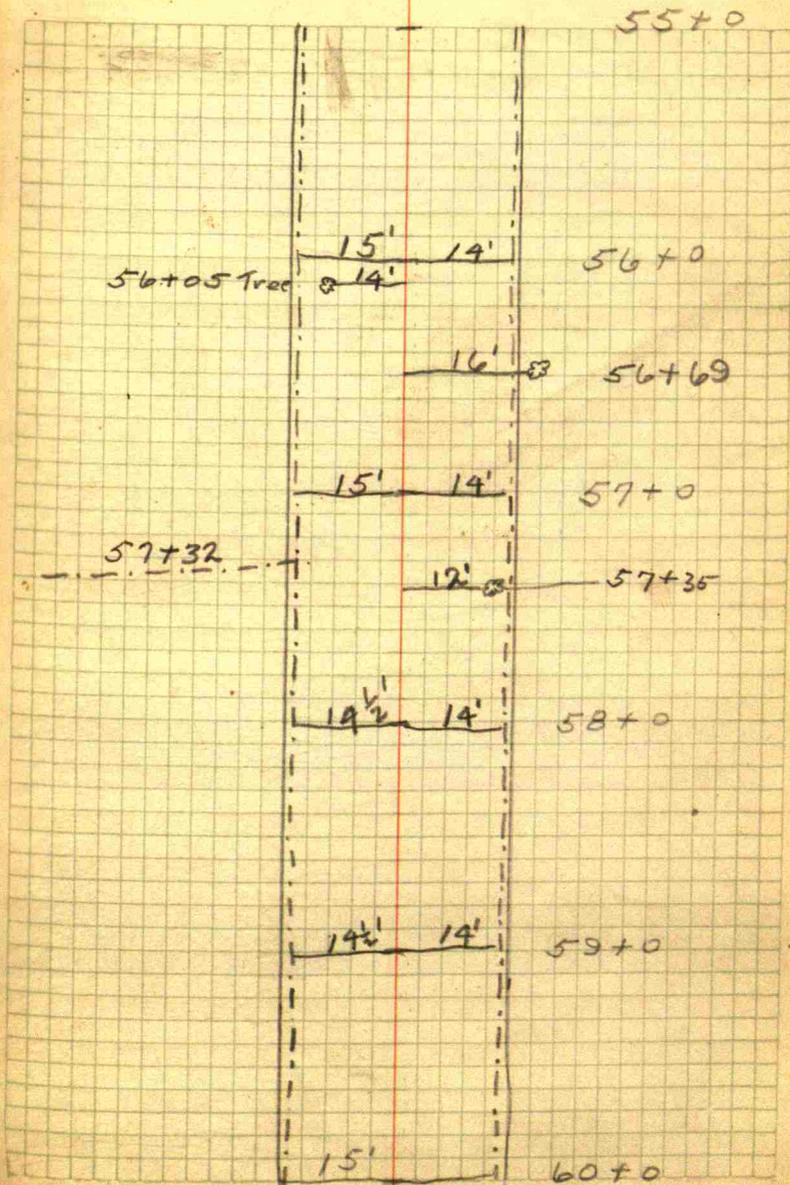 55+0
15' 14' 56+0
56+05 Tree 14'
16' 56+69
15' 14' 57+0
57+32
12' 57+35
14½' 14' 58+0
14½' 14' 59+0
15' 60+0